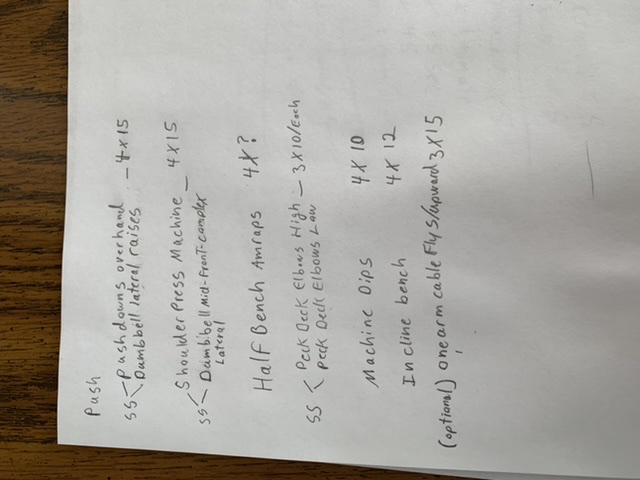 Push
SS < Pushdowns overhand - 4x15
Dumbbell lateral raises
SS < Shoulder Press Machine - 4x15
Dumbibell Mid-Front-complex
Lateral
Half Bench Amraps 4x?
SS < Peck Deck Elbows High - 3x10/Each
Peck Deck Elbows Low
Machine Dips 4x10
Incline bench 4x12
(optional) one arm cable Flys/upward 3x15